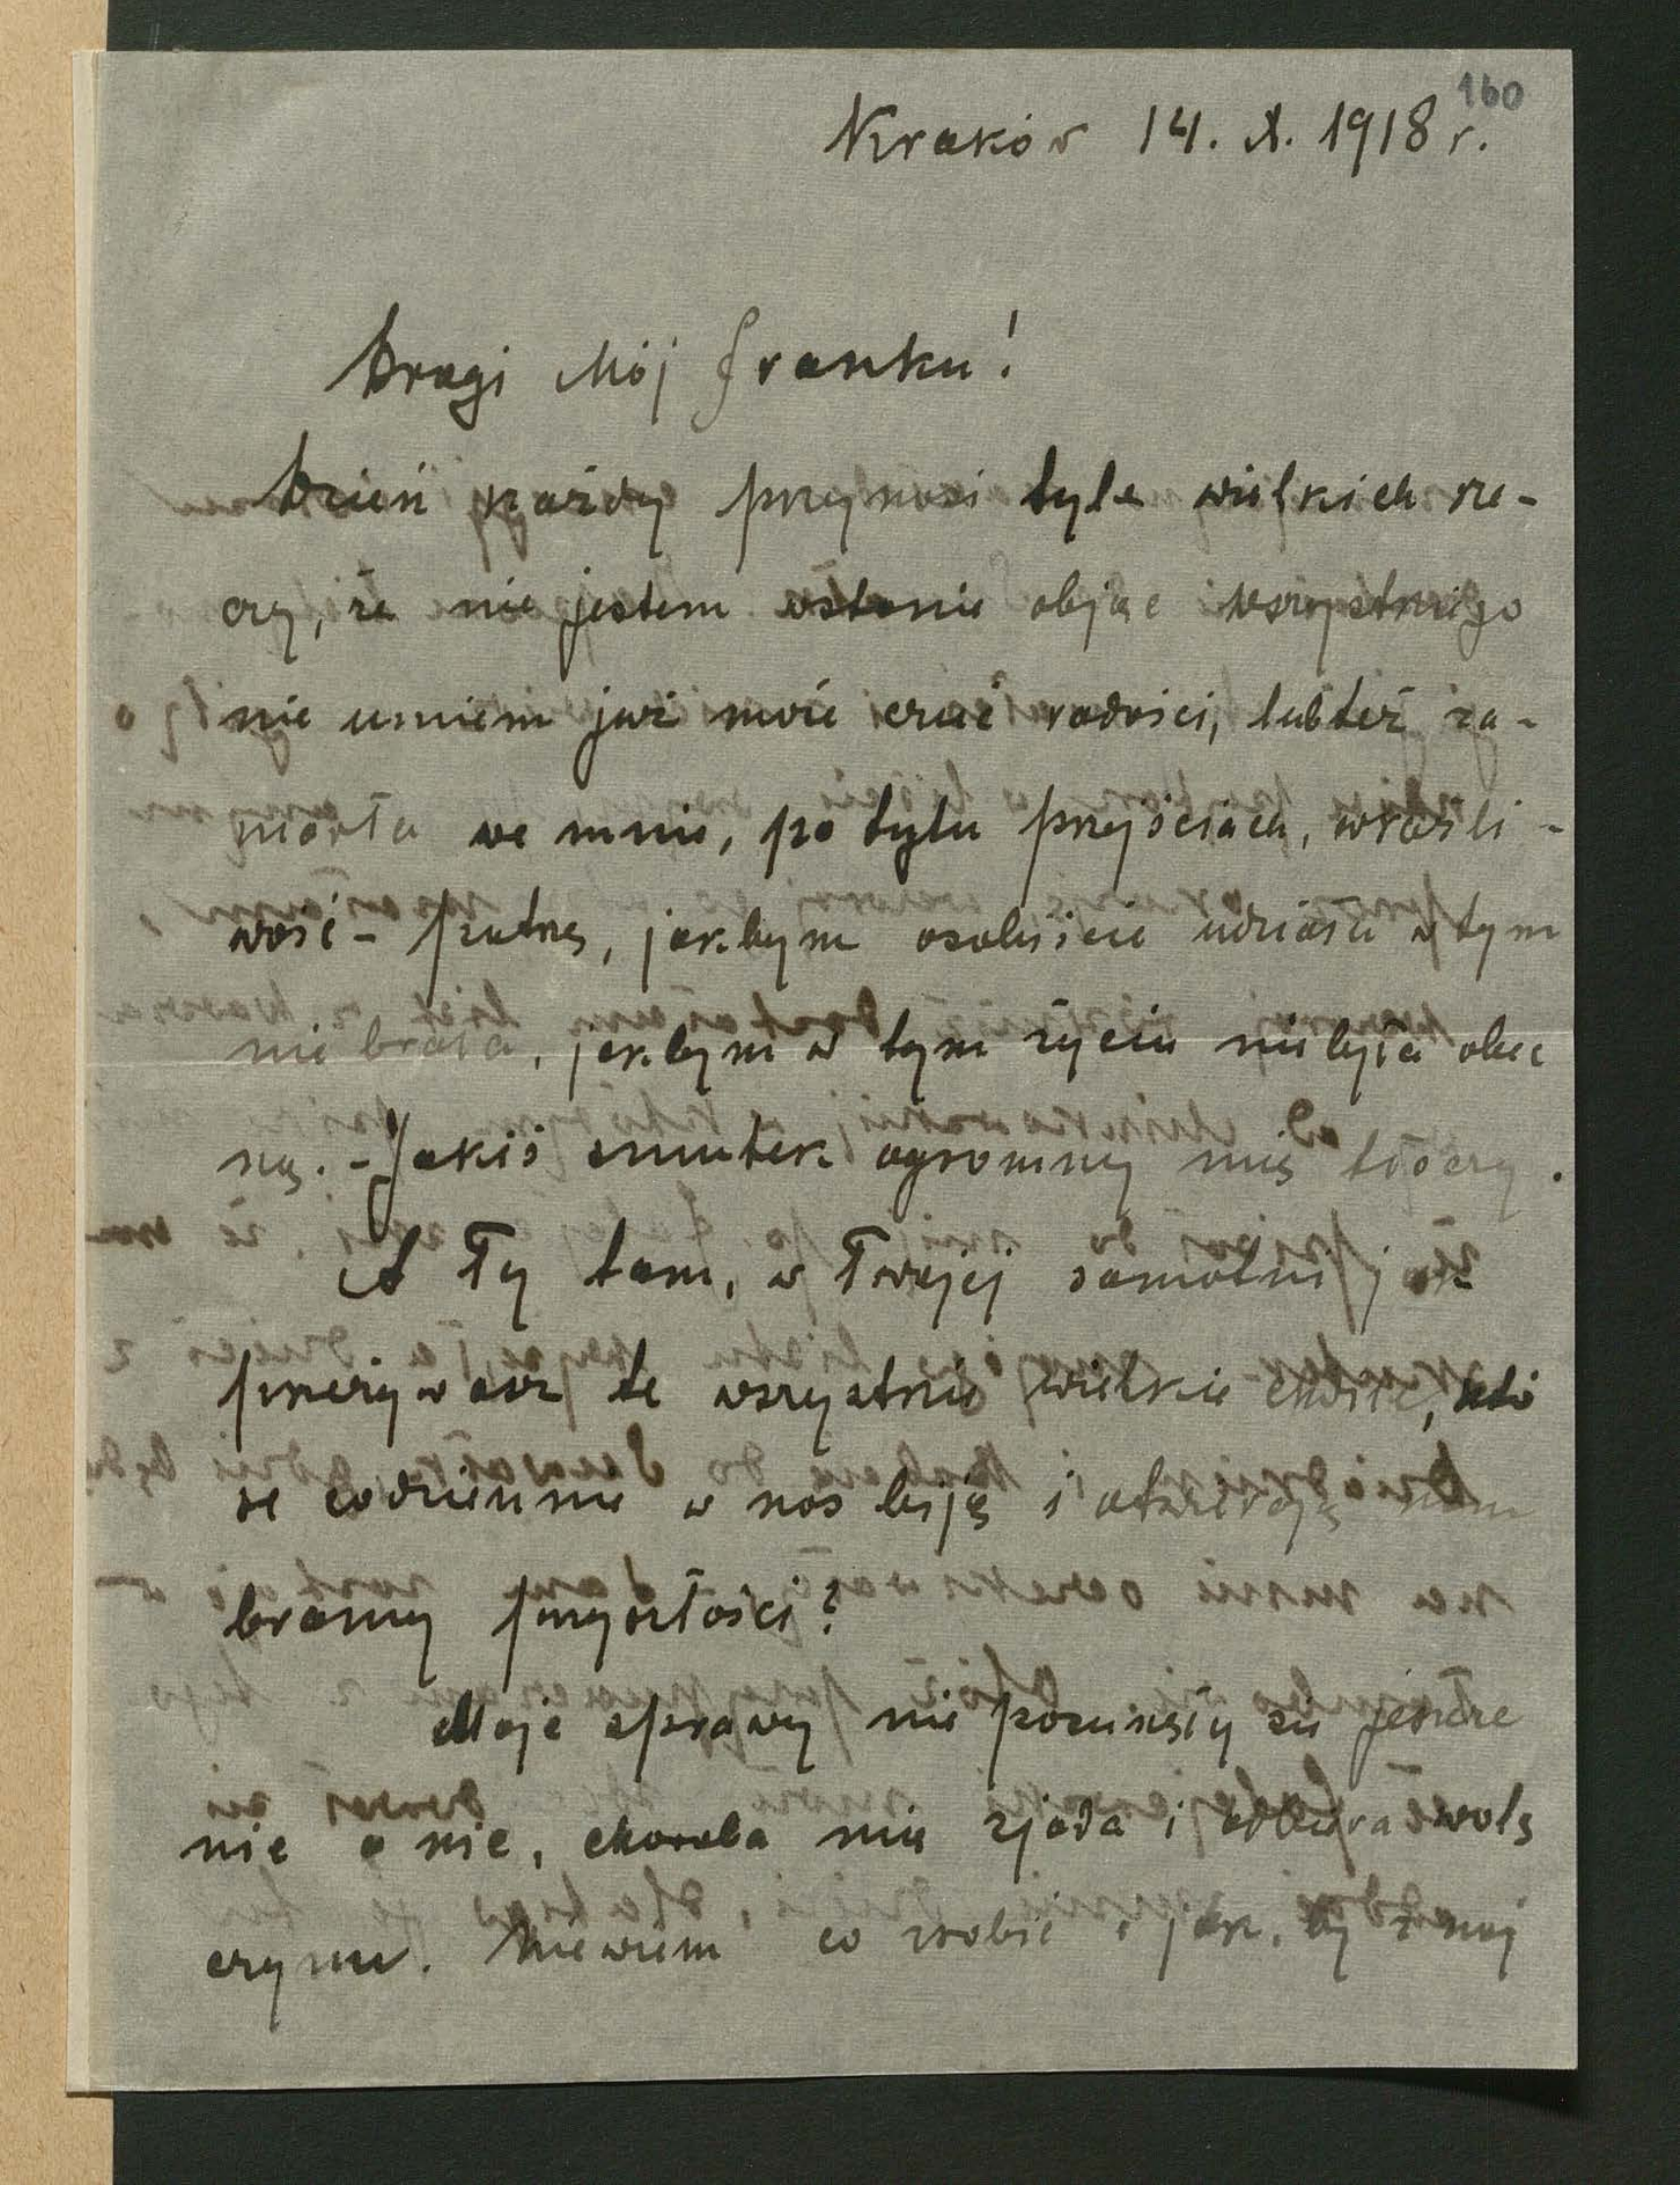 160
Kraków 14. X. 1918 r.
Drogi Mój Franku!
Dzień każdy przynosi tyle wielkich rze-
czy, że nie jestem wstanie objąć wszystkiego
nie umiem już może czuć radości, lubteż za-
marła we mnie, po tylu przejściach, wrażli-
wość – patrzę, jakbym osobiście udziału w tym
nie brała, jakbym w tym życiu niebyła obec
ną. – Jakiś smutek ogromny mię tłoczy.
A Ty tam, w Twojej samotni jak
przeżywasz te wszystkie wielkie chwile, któ
re codziennie w nas biją i otwierają nam
bramy przyszłości?
Moje sprawy nie posunęły się jeszcze
nic a nic, choroba mię zjada i odbiera wolę
czynu. Niewiem co zrobić i jak, by z naj